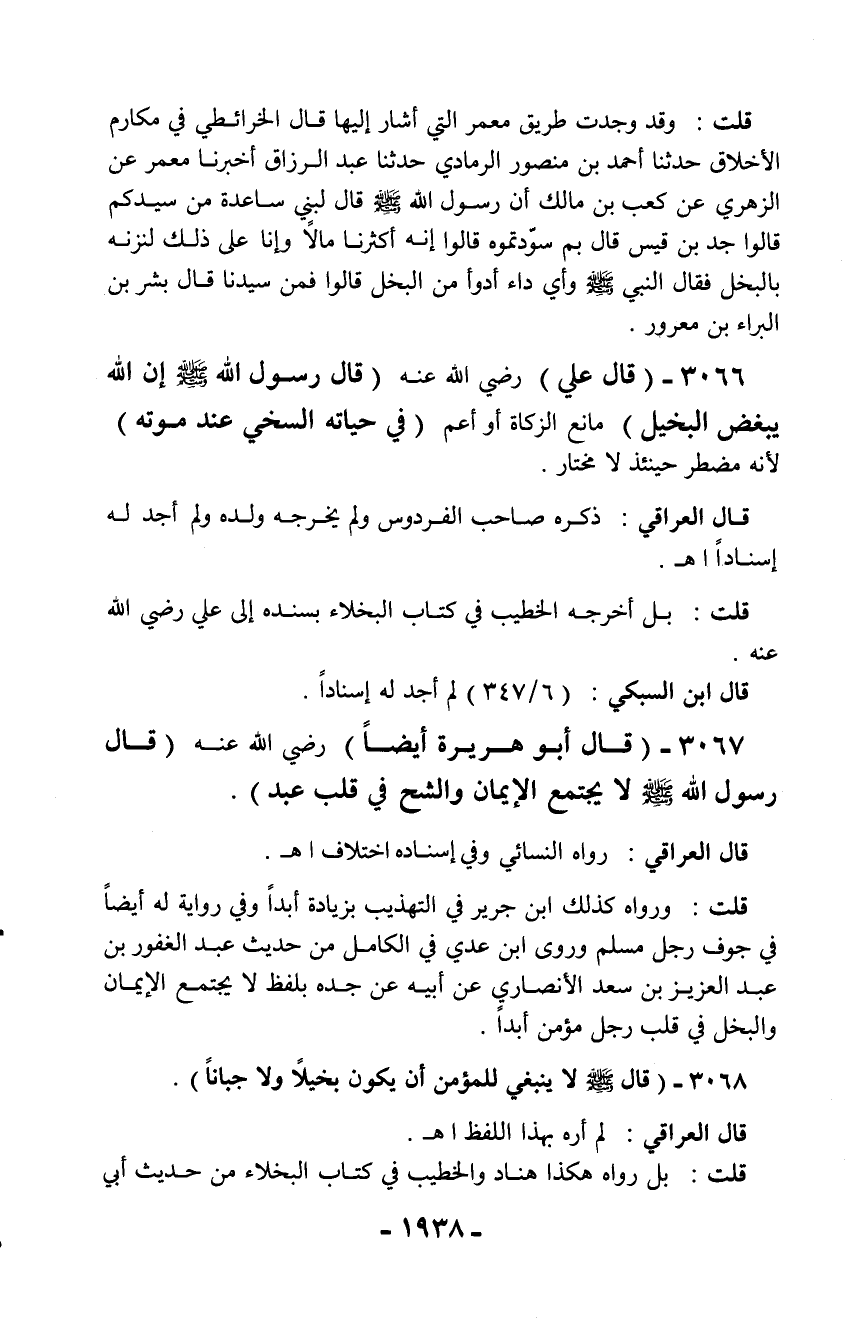 قلت : وقد وجدت طريق معمر التي أشار إليها قال الخرائطي في مكارم
الأخلاق حدثنا أحمد بن منصور الرمادي حدثنا عبد الرزاق أخبرنا معمر عن
الزهري عن كعب بن مالك أن رسول الله ﷺ قال لبني ساعدة من سيدكم
قالوا جد بن قيس قال بم سوّدتموه قالوا إنه أكثرنا مالاً وإنا على ذلك لنزنه
بالبخل فقال النبي ﷺ وأي داء أدوأ من البخل قالوا فمن سيدنا قال بشر بن
البراء بن معرور .
٣٠٦٦ ـ ( قال علي ) رضي الله عنه ( قال رسول الله ﷺ إن الله
يبغض البخيل ) مانع الزكاة أو أعم ( في حياته السخي عند موته )
لأنه مضطر حينئذ لا مختار .
قال العراقي : ذكره صاحب الفردوس ولم يخرجه ولده ولم أجد له
إسناداً ا هـ .
قلت : بل أخرجه الخطيب في كتاب البخلاء بسنده إلى علي رضي الله
عنه .
قال ابن السبكي : ( ٣٤٧/٦ ) لم أجد له إسناداً .
٣٠٦٧ ـ ( قال أبو هريرة أيضاً ) رضي الله عنه ( قال
رسول الله ﷺ لا يجتمع الإيمان والشح في قلب عبد ) .
قال العراقي : رواه النسائي وفي إسناده اختلاف ا هـ .
قلت : ورواه كذلك ابن جرير في التهذيب بزيادة أبداً وفي رواية له أيضاً
في جوف رجل مسلم وروى ابن عدي في الكامل من حديث عبد الغفور بن
عبد العزيز بن سعد الأنصاري عن أبيه عن جده بلفظ لا يجتمع الإيمان
والبخل في قلب رجل مؤمن أبداً .
٣٠٦٨ ـ ( قال ﷺ لا ينبغي للمؤمن أن يكون بخيلاً ولا جباناً ) .
قال العراقي : لم أره بهذا اللفظ ا هـ .
قلت : بل رواه هكذا هناد والخطيب في كتاب البخلاء من حديث أبي
ـ ١٩٣٨ ـ